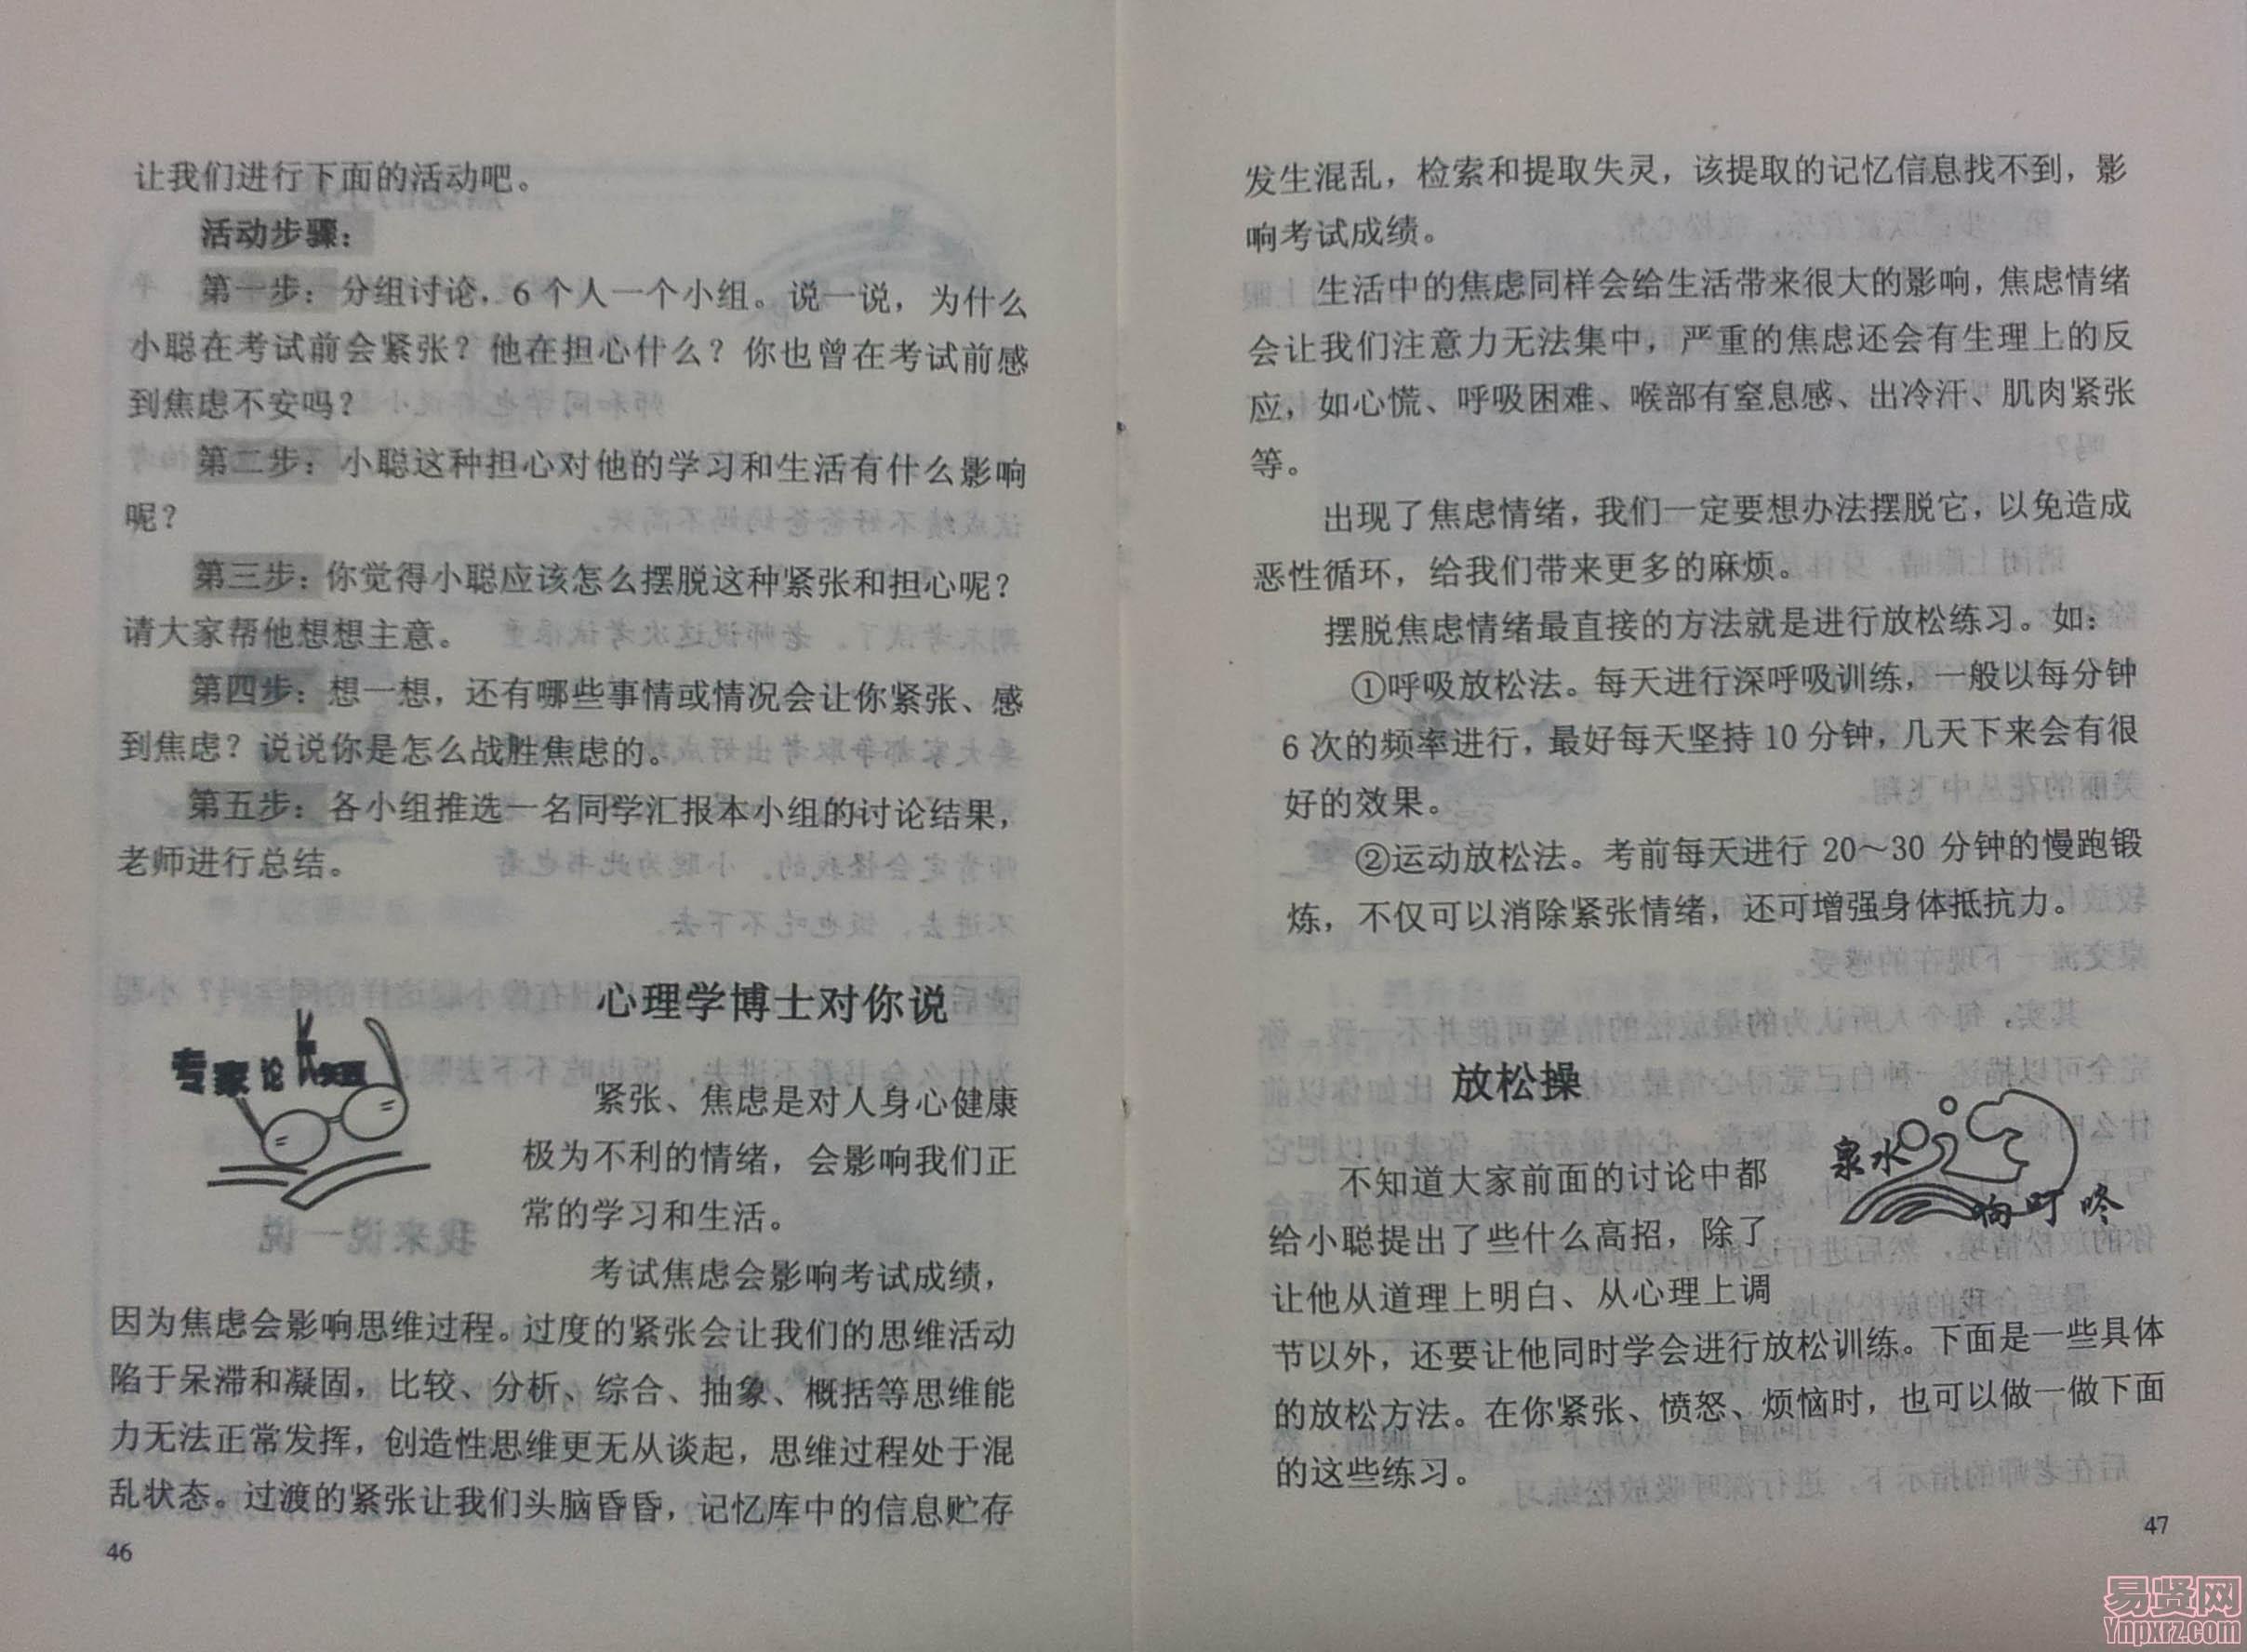 让我们进行下面的活动吧。
活动步骤：
第一步：分组讨论，6个人一个小组。说一说，为什么
小聪在考试前会紧张？他在担心什么？你也曾在考试前感
到焦虑不安吗？
第二步：小聪这种担心对他的学习和生活有什么影响
呢？
第三步：你觉得小聪应该怎么摆脱这种紧张和担心呢？
请大家帮他想想主意。
第四步：想一想，还有哪些事情或情况会让你紧张、感
到焦虑？说说你是怎么战胜焦虑的。
第五步：各小组推选一名同学汇报本小组的讨论结果，
老师进行总结。
心理学博士对你说
专家论
紧张、焦虑是对人身心健康
极为不利的情绪，会影响我们正
常的学习和生活。
考试焦虑会影响考试成绩，
因为焦虑会影响思维过程。过度的紧张会让我们的思维活动
陷于呆滞和凝固，比较、分析、综合、抽象、概括等思维能
力无法正常发挥，创造性思维更无从谈起，思维过程处于混
乱状态。过渡的紧张让我们头脑昏昏，记忆库中的信息贮存
46
发生混乱，检索和提取失灵，该提取的记忆信息找不到，影
响考试成绩。
生活中的焦虑同样会给生活带来很大的影响，焦虑情绪
会让我们注意力无法集中，严重的焦虑还会有生理上的反
应，如心慌、呼吸困难、喉部有窒息感、出冷汗、肌肉紧张
等。
出现了焦虑情绪，我们一定要想办法摆脱它，以免造成
恶性循环，给我们带来更多的麻烦。
摆脱焦虑情绪最直接的方法就是进行放松练习。如：
①呼吸放松法。每天进行深呼吸训练，一般以每分钟
6次的频率进行，最好每天坚持10分钟，几天下来会有很
好的效果。
②运动放松法。考前每天进行20～30分钟的慢跑锻
炼，不仅可以消除紧张情绪，还可增强身体抵抗力。
放松操
泉水
响叮咚
不知道大家前面的讨论中都
给小聪提出了些什么高招，除了
让他从道理上明白、从心理上调
节以外，还要让他同时学会进行放松训练。下面是一些具体
的放松方法。在你紧张、愤怒、烦恼时，也可以做一做下面
的这些练习。
47
易贤网
Ynpxrz.com